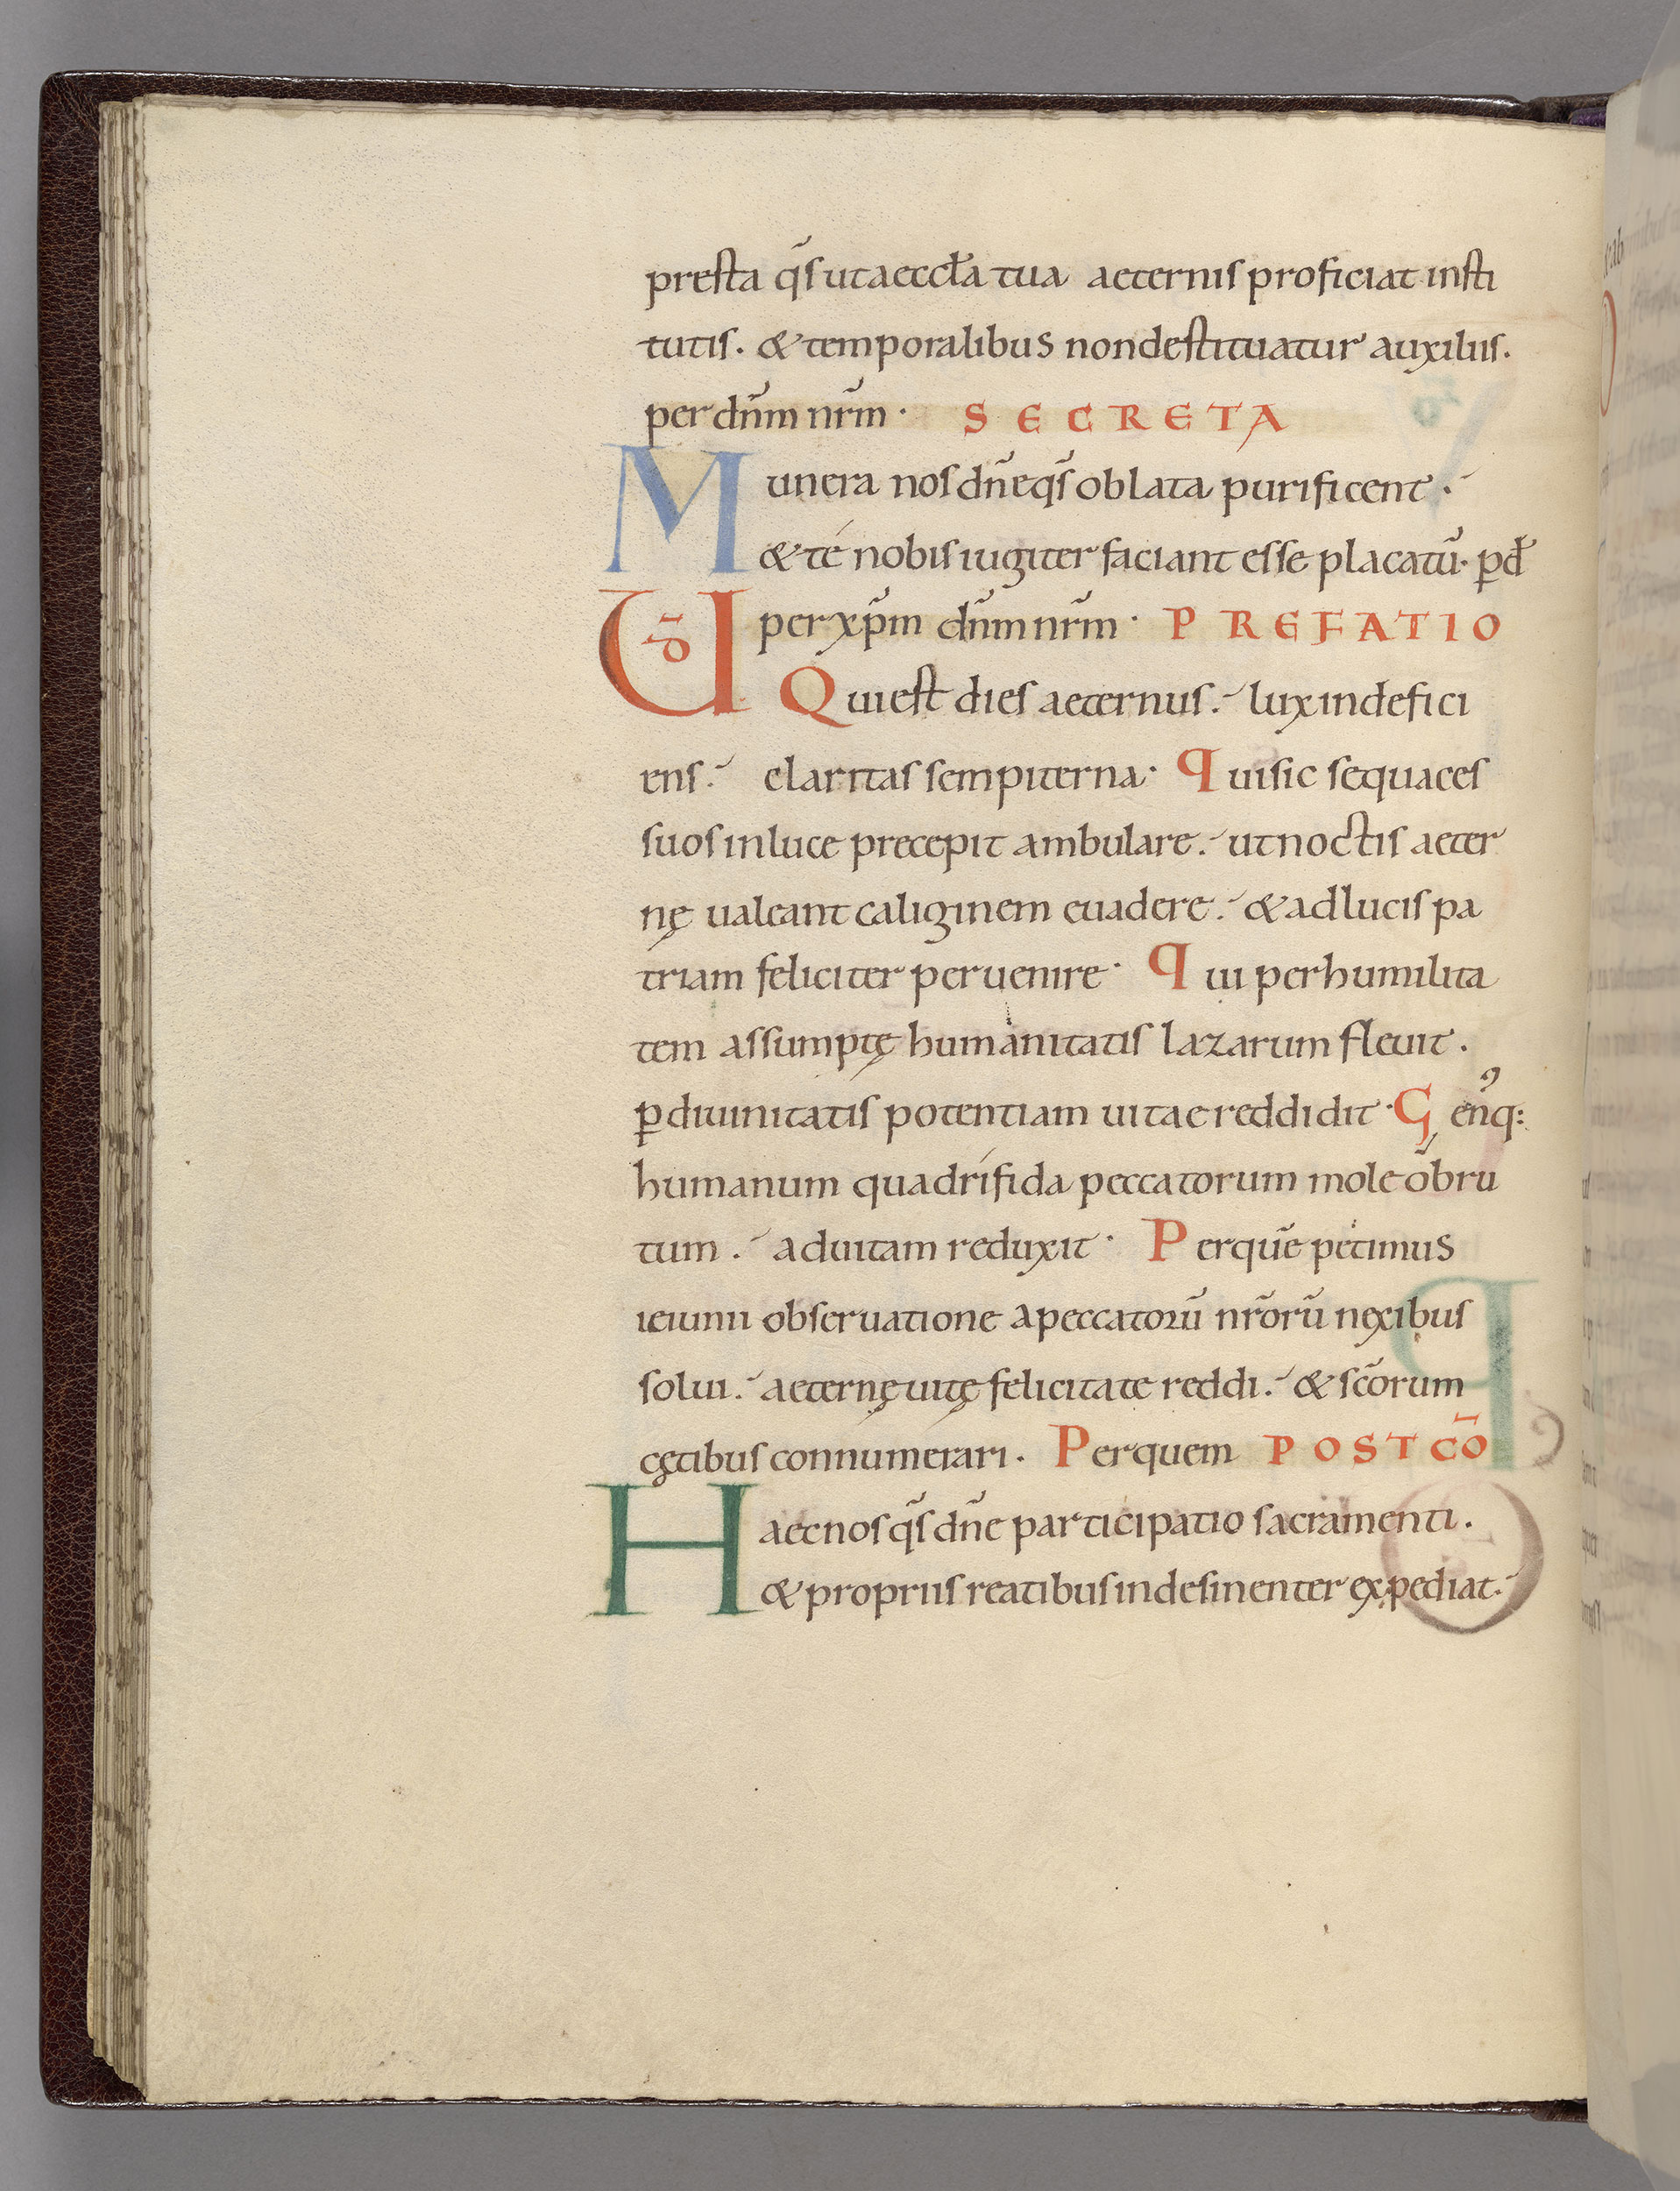 presta q̃s ut aeccl̃a tua aeternis proficiat insti
tutis. & temporalibus non destituatur auxiliis.
per dñm nr̃m · SECRETA
Munera nos dñe q̃s oblata purificent.
& té nobis iugiter faciant esse placatũ. ꝑ d̃
UD̃ per xp̃m dñm nr̃m · PREFATIO
Qui est dies aeternus. lux indefici
ens. claritas sempiterna · Qui sic sequaces
suos in luce precepit ambulare. ut noctis aeter
nę ualeant caliginem euadere. & ad lucis pa
triam feliciter peruenire · Qui per humilita
tem assumptę humanitatis lazarum fleuit.
ꝑ diuinitatis potentiam uitae reddidit · Genꝰq:
humanum quadrífida peccatorum mole õbru
tum. ad uitam reduxit · Per quẽ petimus
ieiunii obseruatione a peccatorũ nr̃orũ nexibus
solui. aeternę uitę felicitate reddi. & sc̃orum
cętibus connumerari. Per quem POST CÕ
Haec nos q̃s dñe participatio sacramenti.
& propriis reatibus indesinenter expediat.